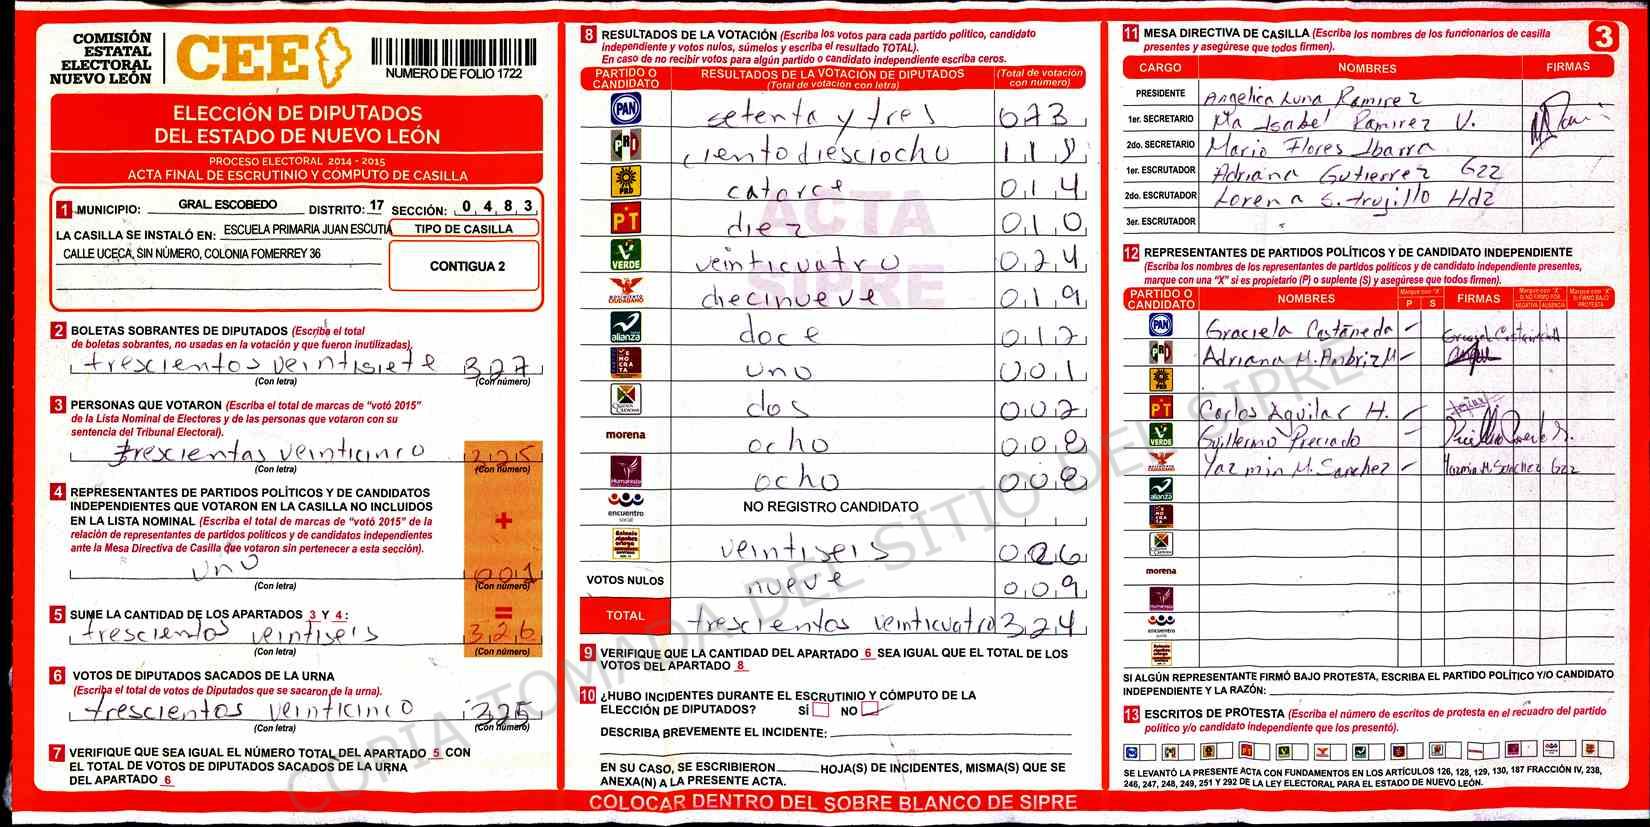 COMISIÓN
ESTATAL
ELECTORAL
NUEVO LEÓN
CEE
NUMERO DE FOLIO 1722
ELECCIÓN DE DIPUTADOS
DEL ESTADO DE NUEVO LEÓN
PROCESO ELECTORAL 2014 - 2015
ACTA FINAL DE ESCRUTINIO Y COMPUTO DE CASILLA
1 MUNICIPIO: GRAL. ESCOBEDO DISTRITO: 17 SECCIÓN: 0 4 8 3
LA CASILLA SE INSTALÓ EN: ESCUELA PRIMARIA JUAN ESCUTIA
CALLE UCECA, SIN NÚMERO, COLONIA FOMERREY 36
TIPO DE CASILLA
CONTIGUA 2
2 BOLETAS SOBRANTES DE DIPUTADOS (Escriba el total
de boletas sobrantes, no usadas en la votación y que fueron inutilizadas).
trescientos veintisiete 327
(Con letra) (Con número)
3 PERSONAS QUE VOTARON (Escriba el total de marcas de "votó 2015"
de la Lista Nominal de Electores y de las personas que votaron con su
sentencia del Tribunal Electoral).
trescientas veinticinco 325
(Con letra) (Con número)
4 REPRESENTANTES DE PARTIDOS POLÍTICOS Y DE CANDIDATOS
INDEPENDIENTES QUE VOTARON EN LA CASILLA NO INCLUIDOS
EN LA LISTA NOMINAL (Escriba el total de marcas de "votó 2015" de la
relación de representantes de partidos políticos y de candidatos independientes
ante la Mesa Directiva de Casilla que votaron sin pertenecer a esta sección).
+
uno 001
(Con letra) (Con número)
=
5 SUME LA CANTIDAD DE LOS APARTADOS 3 Y 4:
trescientos veintiseis 326
(Con letra) (Con número)
6 VOTOS DE DIPUTADOS SACADOS DE LA URNA
(Escriba el total de votos de Diputados que se sacaron de la urna).
trescientos veinticinco 325
(Con letra) (Con número)
7 VERIFIQUE QUE SEA IGUAL EL NÚMERO TOTAL DEL APARTADO 5 CON
EL TOTAL DE VOTOS DE DIPUTADOS SACADOS DE LA URNA
DEL APARTADO 6
8 RESULTADOS DE LA VOTACIÓN (Escriba los votos para cada partido político, candidato
independiente y votos nulos, súmelos y escriba el resultado TOTAL).
En caso de no recibir votos para algún partido o candidato independiente escriba ceros.
PARTIDO O CANDIDATO
RESULTADOS DE LA VOTACIÓN DE DIPUTADOS
(Total de votación con letra)
(Total de votación con número)
PAN setenta y tres 073
PRI ciento diesciocho 118
PRD catorce 014
PT diez 010
VERDE veinticuatro 024
MOVIMIENTO CIUDADANO diecinueve 019
alianza doce 012
DEMOCRATA uno 001
dos 002
morena ocho 008
Humanista ocho 008
encuentro social NO REGISTRO CANDIDATO
veintiseis 026
VOTOS NULOS nueve 009
TOTAL trescientos veinticuatro 324
ACTA
SIPRE
9 VERIFIQUE QUE LA CANTIDAD DEL APARTADO 6 SEA IGUAL QUE EL TOTAL DE LOS
VOTOS DEL APARTADO 8
10 ¿HUBO INCIDENTES DURANTE EL ESCRUTINIO Y CÓMPUTO DE LA
ELECCIÓN DE DIPUTADOS? SÍ NO
DESCRIBA BREVEMENTE EL INCIDENTE:
EN SU CASO, SE ESCRIBIERON HOJA(S) DE INCIDENTES, MISMA(S) QUE SE
ANEXA(N) A LA PRESENTE ACTA.
COLOCAR DENTRO DEL SOBRE BLANCO DE SIPRE
11 MESA DIRECTIVA DE CASILLA (Escriba los nombres de los funcionarios de casilla
presentes y asegúrese que todos firmen).
3
CARGO NOMBRES FIRMAS
PRESIDENTE Angelica Luna Ramirez
1er. SECRETARIO Ma Isabel Ramirez V.
2do. SECRETARIO Mario Flores Ibarra
1er. ESCRUTADOR Adriana Gutierrez Gzz
2do. ESCRUTADOR Lorena S. trujillo Hdz
3er. ESCRUTADOR
12 REPRESENTANTES DE PARTIDOS POLÍTICOS Y DE CANDIDATO INDEPENDIENTE
(Escriba los nombres de los representantes de partidos políticos y de candidato independiente presentes,
marque con una "X" si es propietario (P) o suplente (S) y asegúrese que todos firmen).
PARTIDO O CANDIDATO NOMBRES Marque con "X" P S FIRMAS Marque con "X" SI NO FIRMÓ POR NEGATIVA AUSENCIA Marque con "X" SI FIRMÓ BAJO PROTESTA
PAN Graciela Castañeda
PRI Adriana M. Ambriz M
PRD
PT Carlos Aguilar H.
VERDE Guillermo Preciado
Yazmin M. Sanchez Yazmin M. Sanchez Gzz
alianza
morena
encuentro social
SI ALGÚN REPRESENTANTE FIRMÓ BAJO PROTESTA, ESCRIBA EL PARTIDO POLÍTICO Y/O CANDIDATO
INDEPENDIENTE Y LA RAZÓN:
13 ESCRITOS DE PROTESTA (Escriba el número de escritos de protesta en el recuadro del partido
político y/o candidato independiente que los presentó).
SE LEVANTÓ LA PRESENTE ACTA CON FUNDAMENTOS EN LOS ARTÍCULOS 126, 128, 129, 130, 187 FRACCIÓN IV, 238,
246, 247, 248, 249, 251 Y 292 DE LA LEY ELECTORAL PARA EL ESTADO DE NUEVO LEÓN.
COPIA TOMADA DEL SITIO DEL SIPRE